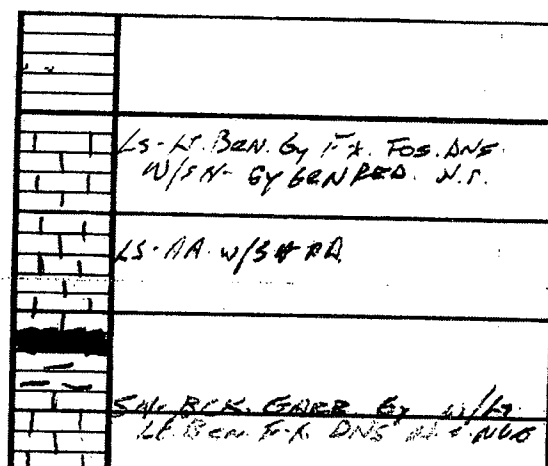 LS-LT. BRN. Gy F-X. FOS. DNS.
W/SH- GY GRN RED. N.S.
LS-AA w/SH AA
SH- BCK. Gy w/LS
LT. BRN F-X DNS